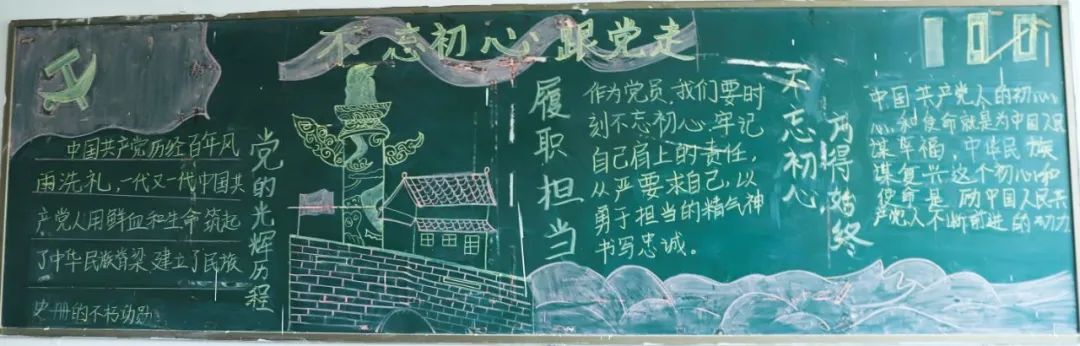 不忘初心 跟党走
中国共产党历经百年风
雨洗礼，一代又一代中国共
产党人用鲜血和生命筑起
了中华民族脊梁，建立了民族
史册的不朽功勋
党的光辉历程
履职担当
作为党员，我们要时
刻不忘初心，牢记
自己肩上的责任，
从严要求自己，以
勇于担当的精气神
书写忠诚。
不忘初心
方得始终
中国共产党人的初心
心和使命就是为中国人民
谋幸福，中华民族
谋复兴这个初心和
使命是 励中国人民共
产党人不断前进的动力